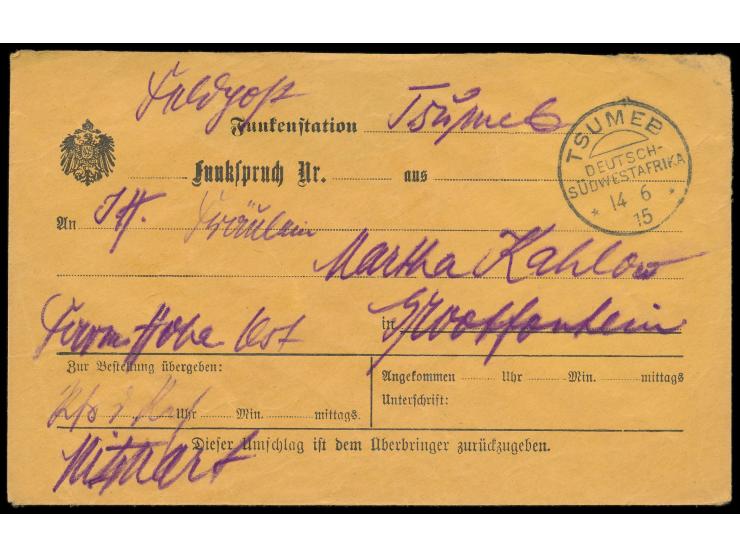 Feldpost
Funkenstation Tsumeb
Funkspruch Nr. aus
TSUMEB
DEUTSCH-
SÜDWESTAFRIKA
* 14 6 *
15
An Fräulein
Martha Kahlow
Farm Hohe Ost in Grootfontein
Zur Bestellung übergeben:
Uhr Min. mittags.
Angekommen Uhr Min. mittags
Unterschrift:
Dieser Umschlag ist dem Überbringer zurückzugeben.